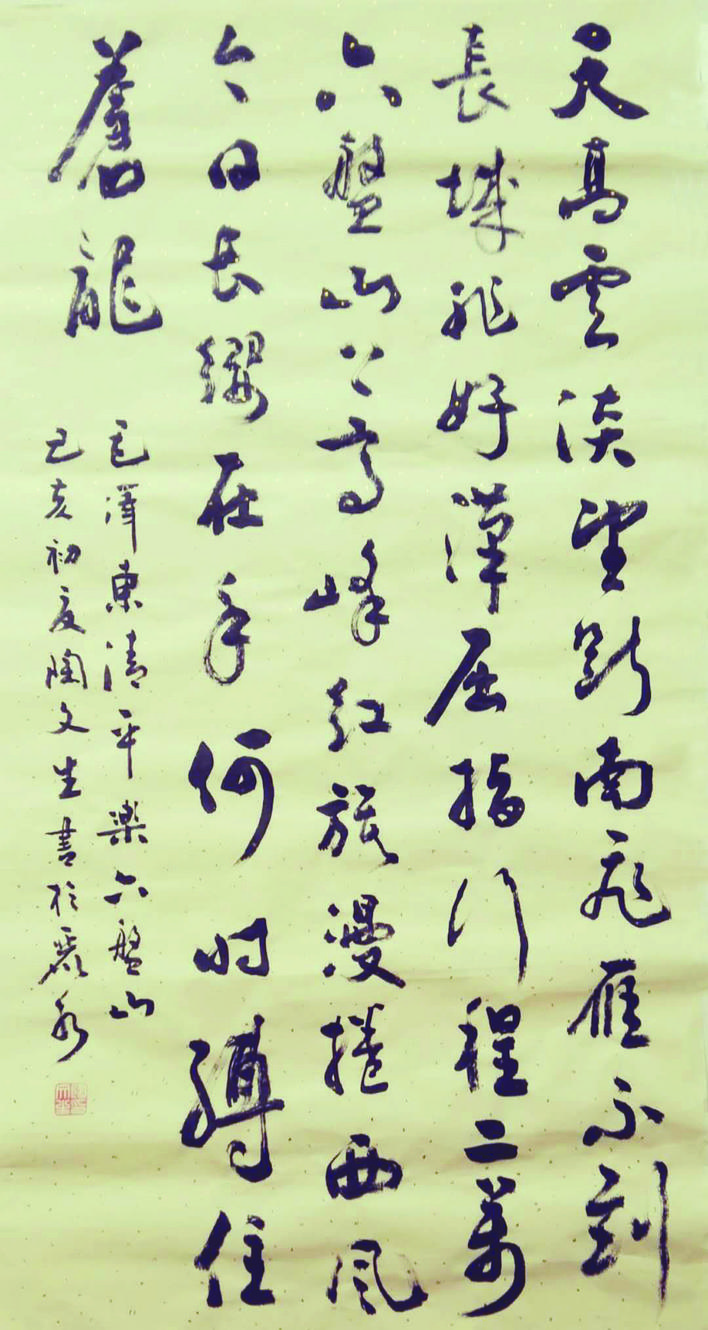 天高雲淡望斷南飛雁不到
長城非好漢屈指行程二萬
六盤山上高峰紅旗漫捲西風
今日長纓在手何时縛住
蒼龍
毛澤東清平楽六盤山
己亥初夏陶文生書於麗水